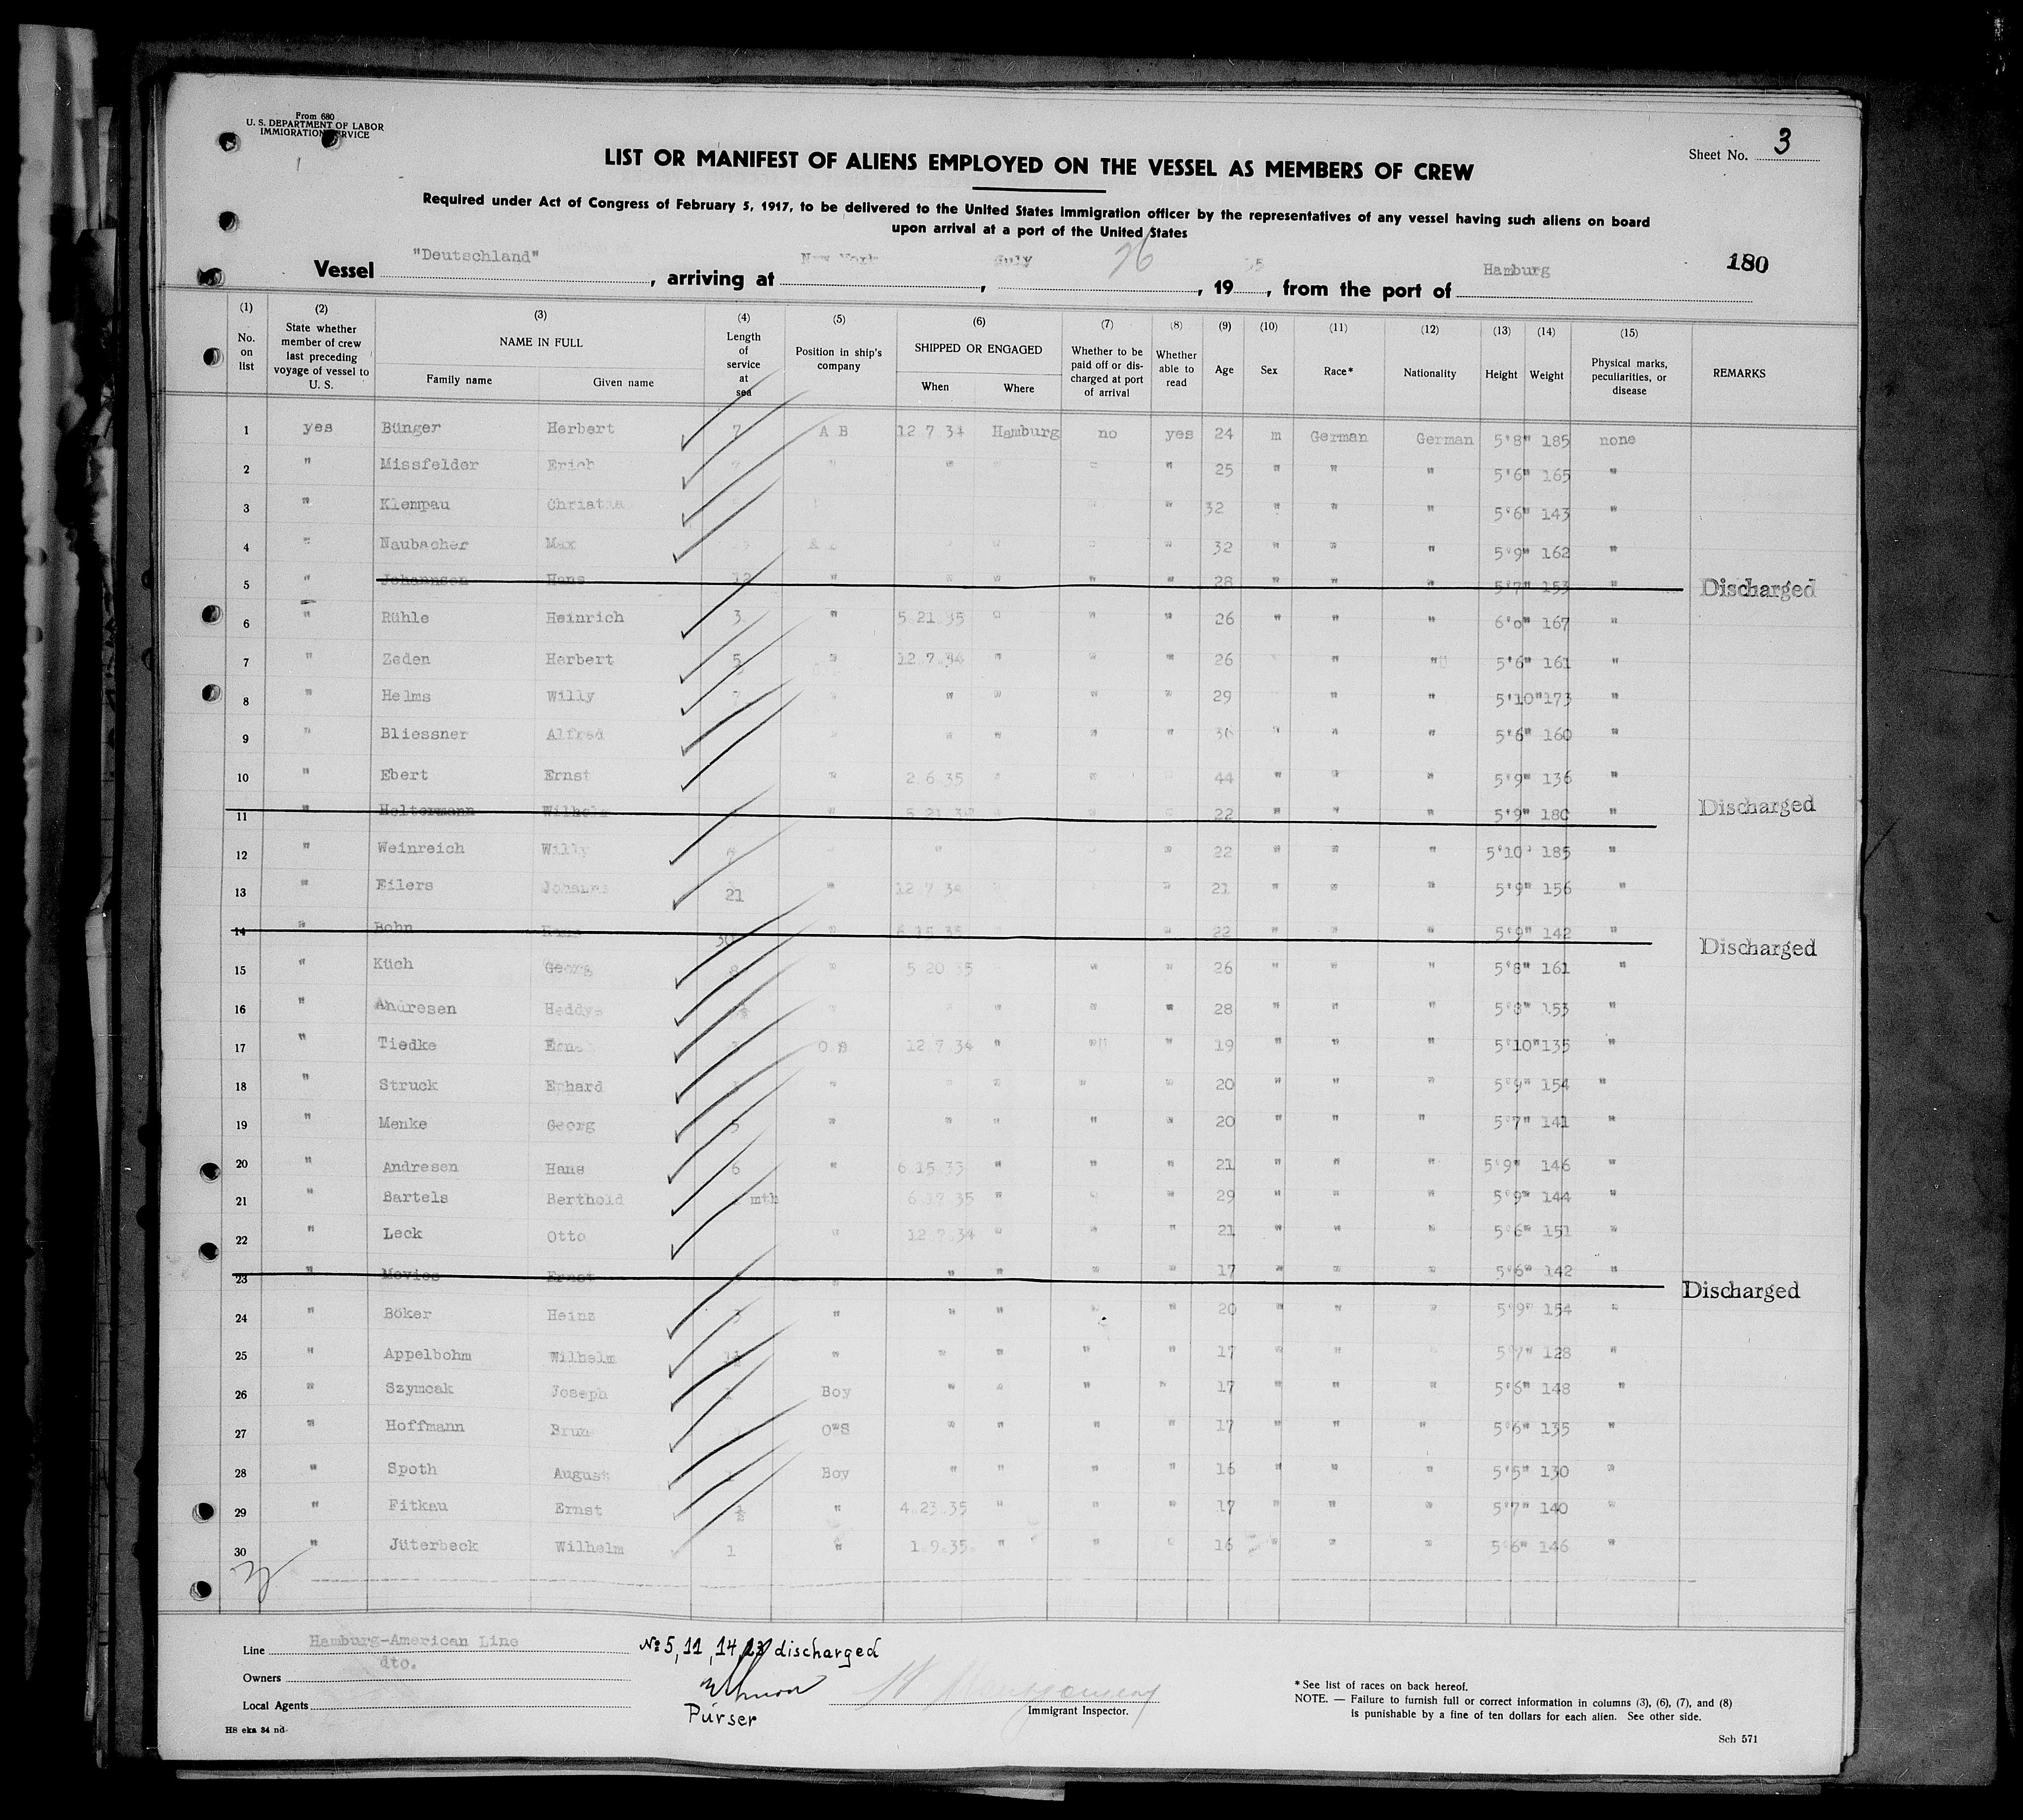 From 680
U. S. DEPARTMENT OF LABOR
IMMIGRATION SERVICE
Sheet No. 3
LIST OR MANIFEST OF ALIENS EMPLOYED ON THE VESSEL AS MEMBERS OF CREW
Required under Act of Congress of February 5, 1917, to be delivered to the United States immigration officer by the representatives of any vessel having such aliens on board
upon arrival at a port of the United States
180
Vessel "Deutschland", arriving at New York, July 26, 1935, from the port of Hamburg
(1) No. on list (2) State whether member of crew last preceding voyage of vessel to U. S. (3) NAME IN FULL Family name Given name (4) Length of service at sea (5) Position in ship's company (6) SHIPPED OR ENGAGED When Where (7) Whether to be paid off or discharged at port of arrival (8) Whether able to read (9) Age (10) Sex (11) Race* (12) Nationality (13) Height (14) Weight (15) Physical marks, peculiarities, or disease REMARKS
1 yes Bünger Herbert 7 A B 12 7 34 Hamburg no yes 24 m German German 5'8" 185 none
2 " Missfelder Erich " " " " 25 " " " 5'6" 165 "
3 " Klempau " 32 " " " 5'6" 143 "
4 " Naubacher Max " " " " 32 " " " 5'9" 162 "
5 " Johannsen Hans 12 " " " " " 28 " " " 5'7" 153 " Discharged
6 " Rühle Heinrich 3 " 5 21 35 " " " 26 " " " 6'0" 167 "
7 " Zeden Herbert 5 " 12.7.34 " " " 26 " " 5'6" 161 "
8 " Helms Willy 7 " " " " 29 " " 5'10" 173 "
9 " Bliessner Alfred " " " " " " " " 5'6" 160 "
10 " Ebert Ernst " 2 6 35 " " 44 " " " 5'9" 136 "
11 " Holtermann Wilhelm " " " 22 " " " 5'9" 180 " Discharged
12 " Weinreich Willy " " 22 " " " 5'10" 185 "
13 " Eilers 21 " 12 7 34 " 21 " " " 5'9" 156 "
14 " Bohn 30 " 6 15 35 " 22 " " " 5'9" 142 " Discharged
15 " Küch Georg 8 " 5 20 35 " " 26 " " " 5'8" 161 "
16 " Andresen " " " " 28 " " " 5'8" 153 "
17 " Tiedke O.S 12 7 34 " " " 19 " " " 5'10" 135 "
18 " Struck " " " " " 20 " " " 5'9" 154 "
19 " Menke Georg 5 " " " " " 20 " " " 5'7" 141 "
20 " Andresen Hans 6 " 6 15 33 " " " 21 " " " 5'9" 146 "
21 " Bartels Berthold mth 6.17 35 " " " 29 " " " 5'9" 144 "
22 " Leck Otto " 12.7.34 " " " 21 " " " 5'6" 151 "
23 " Ernst " " " " " 17 " " " 5'6" 142 " Discharged
24 " Böker Heinz 3 " " " " " 20 " " " 5'9" 154 "
25 " Appelbohm Wilhelm 1½ " " " " " 17 " " 5'7" 128 "
26 " Szymcak Joseph Boy " " " " 17 " " " 5'6" 148 "
27 " Hoffmann O"S " " " " 17 " " " 5'6" 135 "
28 " Spoth August Boy " " " " 16 " " " 5'5" 130 "
29 " Fitkau Ernst ½ " 4.23.35 " " " 17 " " " 5'7" 140 "
30 " Jüterbeck Wilhelm 1 " 1.9.35. " " " 16 " " " 5'6" 146 "
Line Hamburg-American Line
Owners dto.
Local Agents
H8 eka 34 nd
No 5, 11, 14, 23 discharged
Purser
Immigrant Inspector.
* See list of races on back hereof.
NOTE. — Failure to furnish full or correct information in columns (3), (6), (7), and (8)
is punishable by a fine of ten dollars for each alien. See other side.
Sch 571